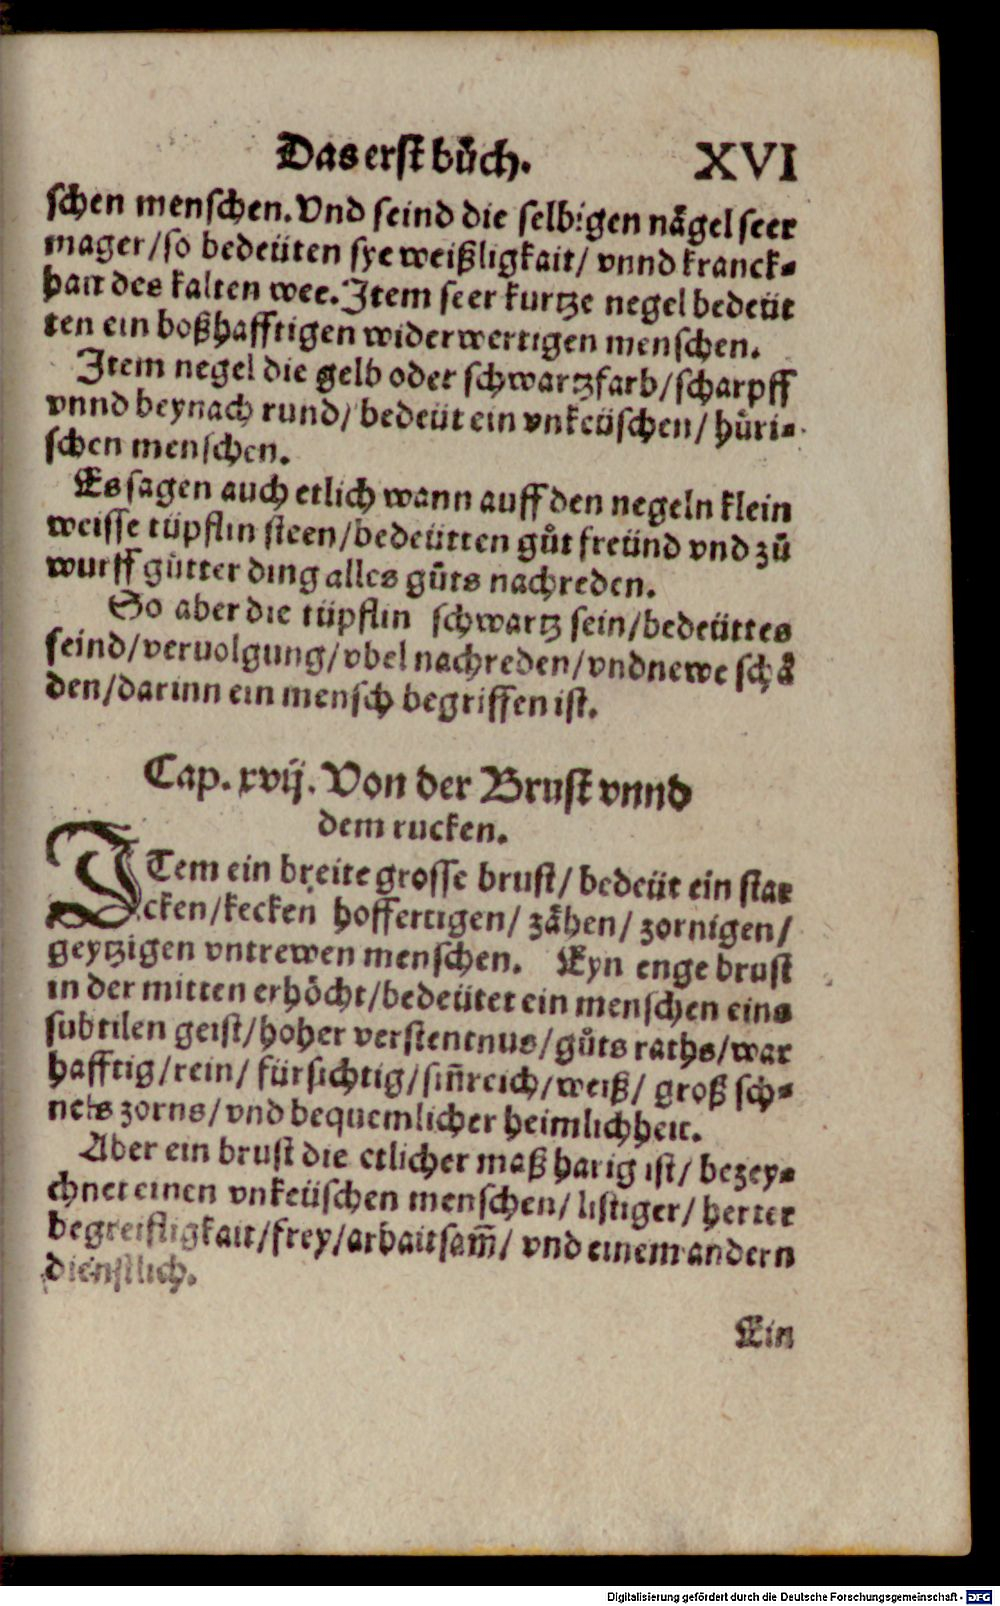 Das erst bůch. XVI
schen menschen. Vnd seind die selbigen nägel seer
mager/so bedeüten sye weißligkait/ vnnd kranck⸗
hait des kalten wee. Item seer kurtze negel bedeüt
ten ein boßhafftigen widerwertigen menschen.
Item negel die gelb oder schwartzfarb/scharpff
vnnd beynach rund/ bedeüt ein vnkeüschen/ hůri⸗
schen menschen.
Es sagen auch etlich wann auff den negeln klein
weisse tüpflin steen/bedeütten gůt freünd vnd zů
wurff gůtter ding alles gůts nachreden.
So aber die tüpflin schwartz sein/bedeüttes
feind/veruolgung/vbel nachreden/vndnewe schå
den/darinn ein mensch begriffen ist.
Cap. xvij. Von der Brust vnnd
dem rucken.
ITem ein breite grosse brust/ bedeüt ein star
cken/kecken hoffertigen/ zähen/ zornigen/
geytzigen vntrewen menschen. Eyn enge brust
in der mitten erhöcht/bedeütet ein menschen eins
subtilen geist/hoher verstentnus/gůts raths/war
hafftig/rein/ fürsichtig/sin̄reich/weiß/ groß sch⸗
nels zorns/vnd bequemlicher heimlichheit.
Aber ein brust die etlicher maß harig ist/ bezey⸗
chnet einen vnkeüschen menschen/ listiger/ herter
begreifligkait/frey/arbaitsam̄/ vnd einem andern
dienstlich.
Ein
Digitalisierung gefördert durch die Deutsche Forschungsgemeinschaft - DFG